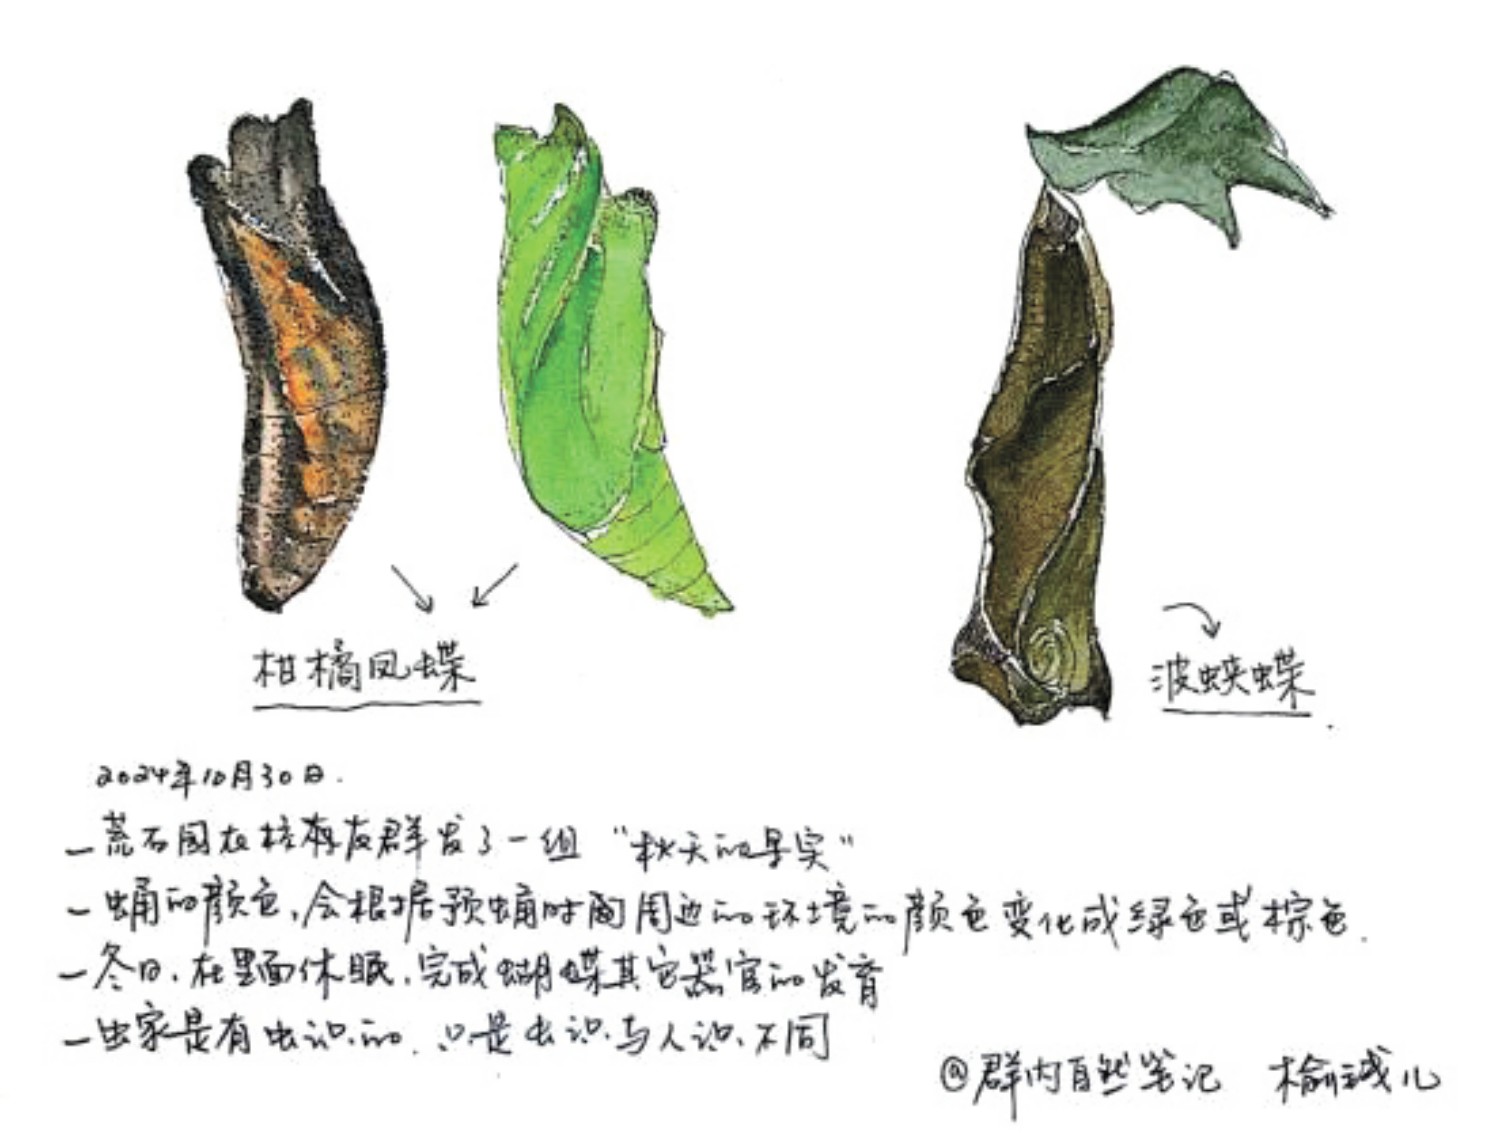 柑橘凤蝶
波蛱蝶
2024年10月30日.
一荒石园在 群发了一组 "秋天的果实"
一蛹的颜色,会根据预蛹时周边的环境的颜色变化成绿色或棕色.
一冬日,在里面休眠,完成蝴蝶其它器官的发育
一虫家是有虫识的.只是虫识与人识不同
@群内自然笔记 榆 儿